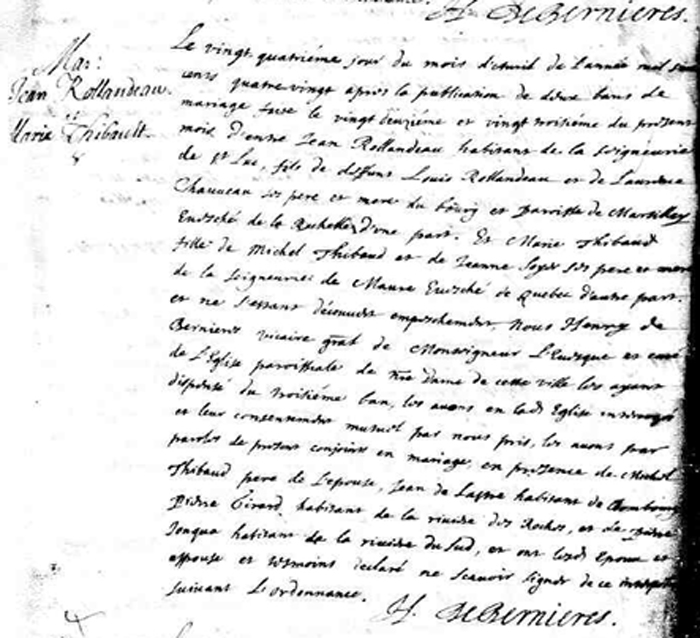 H. DeBernieres.
Mar:
Jean Rollandeau.
et
Marie Thibault.
Le vingt quatriéme jour du mois d'avril de l'année mil six
cents quatre vingt apres la publication de deux bans de
mariage faite le vingt deuxiéme et vingt troisiéme du present
mois d'entre Jean Rollandeau habitant de la seigneurie
de St Luc, fils de deffunts Louis Rollandeau et de Laurence
Chauveau ses pere et mere du bourg et Parroisse de Marsilley
Evesché de la Rochelle d'une part. Et Marie Thibaud
fille de Michel Thibaud et de Jeanne Soyer ses pere et mere
de la seigneurie de Maure Evesché de Quebec d'autre part.
et ne s'estant découvert empeschement, Nous Henry de
Bernieres vicaire gñal de Monseigneur L'Evesque et curé
de L'Eglise paroissiale de Nre Dame de cette ville les ayant
dispensé du troisiéme ban, les avons en lad. Eglise interrogé
et leur consentement mutuel par nous pris, les avons par
paroles de present conjoints en mariage, en presence de Michel
Thibaud pere de L'epouse, Jean de Lastre habitant de Dombourg
Pierre Girard habitant de la riviere des Roches, et de Pierre
Jonqua habitant de la riviere du Sud, et ont lesd. Epoux et
espouse et tesmoins declaré ne sçavoir signer de ce interpellé
suivant L'ordonnance.
H. DeBernieres.